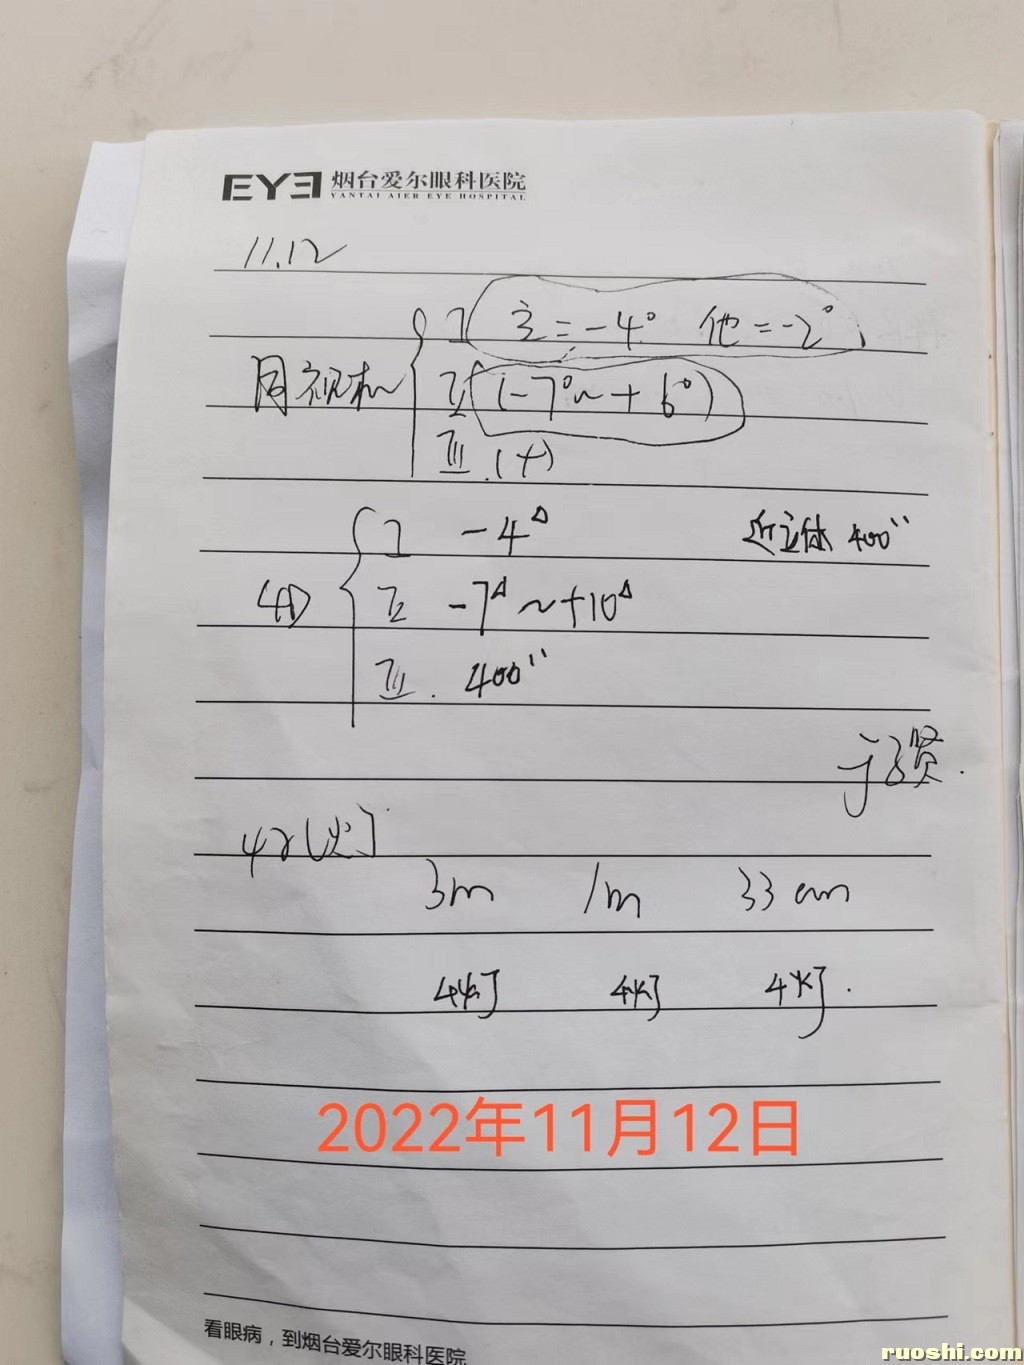 EYE 烟台爱尔眼科医院
YANTAI AIER EYE HOSPITAL
11.12
I 主=-4° 他=-2°
同视机 II (-7°~+6°)
III.(+)
I -4△ 近立体 400''
4D II -7△~+10△
III. 400''
4孔灯
3m 1m 33cm
4灯 4灯 4灯.
2022年11月12日
看眼病，到烟台爱尔眼科医院
ruoshi.com